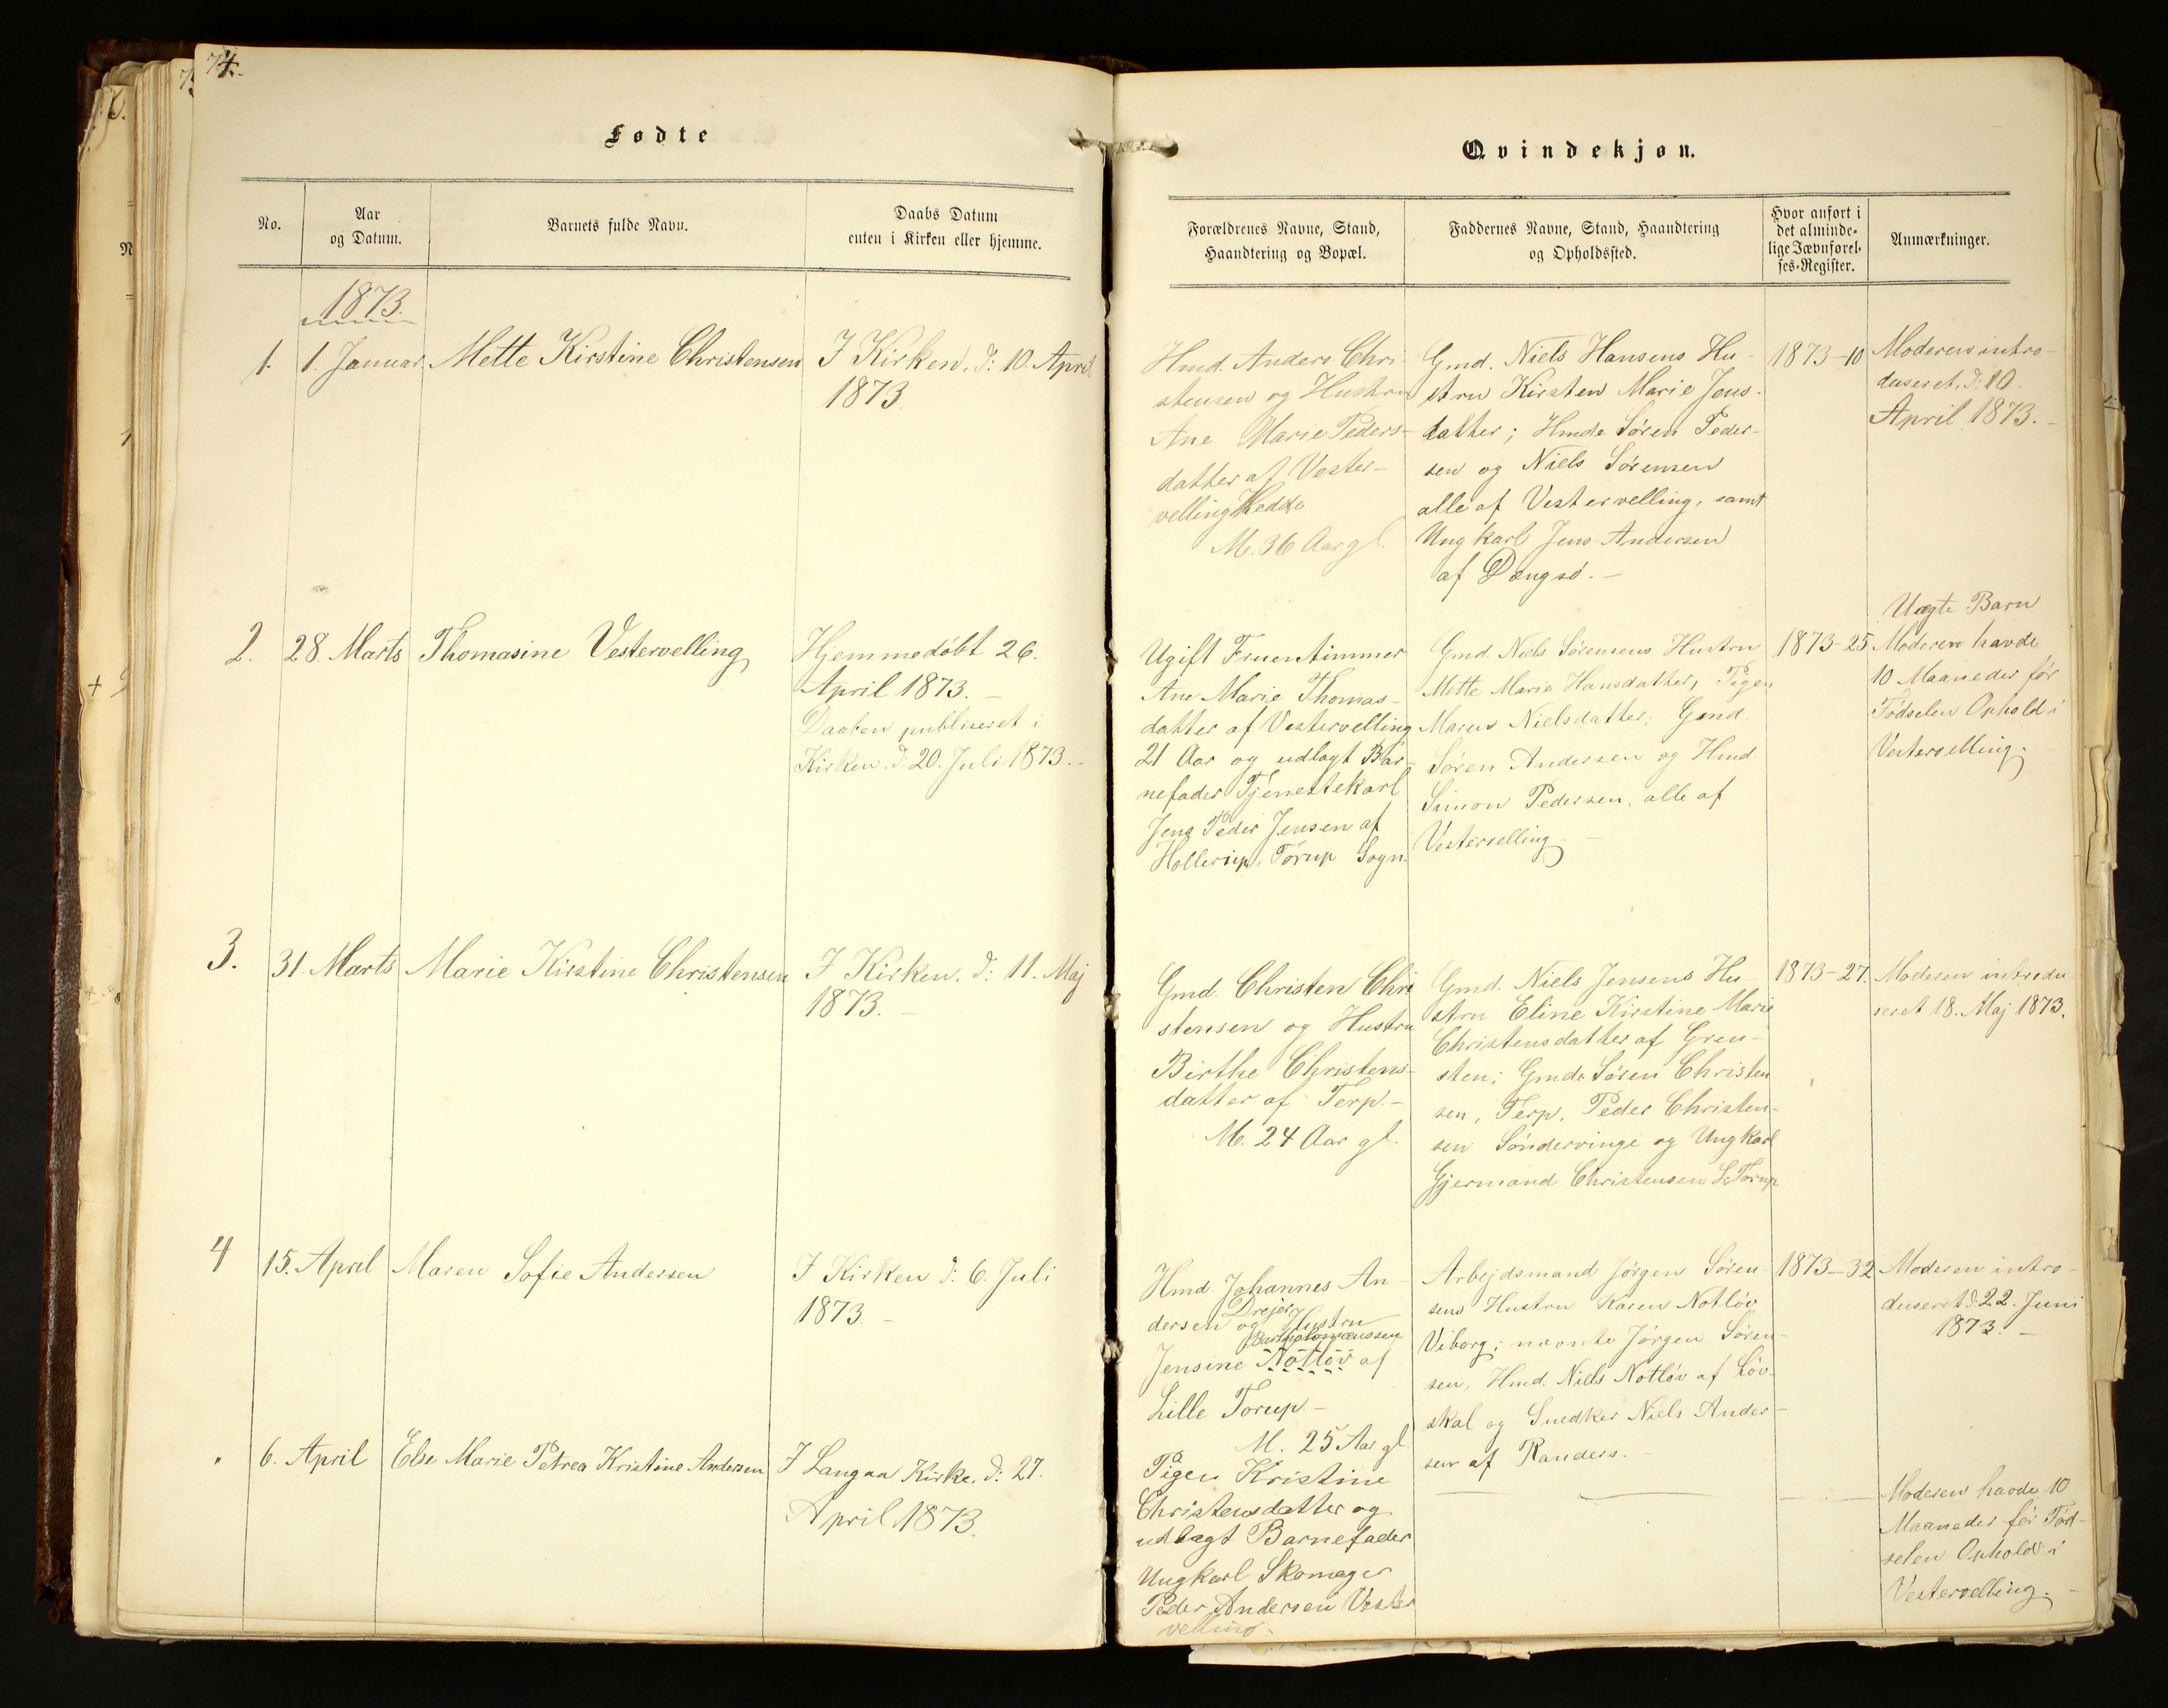 74.
Fødte
No.
Aar
og Datum.
Barnets fulde Navn.
Daabs Datum
enten i Kirken eller hjemme.
1873.
1.
1. Januar
Mette Kirstine Christensen
I Kirken, d: 10. April
1873
2.
28. Marts
Thomasine Vestervelling
Hjemmedøbt 26.
April 1873. –
Daaben publiseret i
Kirken d: 20. Juli 1873. –
3.
31. Marts
Marie Kirstine Christensen
I Kirken, d: 11. Maj
1873. –
4
15. April
Maren Sofie Andersen
I Kirken d: 6. Juli
1873. –
"
6. April
Else Marie Petrea Kristine Andersen
I Langaa Kirke, d: 27.
April 1873.
Qvindekjøn.
Forældrenes Navne, Stand,
Haandtering og Bopæl.
Faddernes Navne, Stand, Haandtering
og Opholdssted.
Hvor anført i
det alminde-
lige Jævnførel-
ses-Register.
Anmærkninger.
Hmd. Anders Chri-
stensen og Hustru
Ane Marie Peders-
datter af Vester-
velling Hede
M. 36 Aar gl.
Gmd. Niels Hansens Hu-
stru Kirsten Marie Jens-
datter; Hmde Søren Peder-
sen og Niels Sørensen
alle af Vestervelling, samt
Ungkarl Jens Andersen
af Dengsø. –
1873–10
Moderen intro-
duseret, d: 10.
April 1873. –
Ugift Fruentimmer
Ane Marie Thomas-
datter af Vestervelling
21 Aar og udlagt Bar-
nefader Tjenestekarl
Jens Peder Jensen af
Hollerup, Tørup Sogn.
Gmd. Niels Sørensens Hustru
Mette Marie Hansdatter, Pigen
Maren Nielsdatter; Gmd.
Søren Andersen og Hmd.
Simon Pedersen, alle af
Vestervelling. –
1873–25
Uægte Barn
Moderen havde
10 Maaneder før
Fødselen Ophold i
Vestervelling.
Gmd. Christen Chri
stensen og Hustru
Birthe Christens-
datter af Terp. –
M. 24 Aar gl.
Gmd. Niels Jensens Hu-
stru Eline Kirstine Marie
Christensdatter af Gren-
sten; Gmde Søren Christen
sen, Terp, Peder Christen-
sen Søndervinge og Ungkarl
Gjermand Christensen L. Torup
1873–27.
Moderen introdu
seret 18. Maj 1873.
Hmd. Johannes An-
dersen Drejer og Hustru
Bartholomæussen
Jensine Nøtløv af
Lille Torup. –
M. 25 Aar gl.
Arbejdsmand Jørgen Søren-
sens Hustru Karen Notløv
Viborg; nævnte Jørgen Søren-
sen, Hmd. Niels Notløv af Løv-
skal og Snedker Niels Ander-
sen af Randers. –
1873–32
Moderen intro-
duseret d: 22. Juni
1873. –
Pigen Kristine
Christensdatter og
udlagt Barnefader
Ungkarl Skomager
Peder Andersen Vester
velling.
Moderen havde 10
Maaneder før Fød-
selen Ophold i
Vestervelling. –